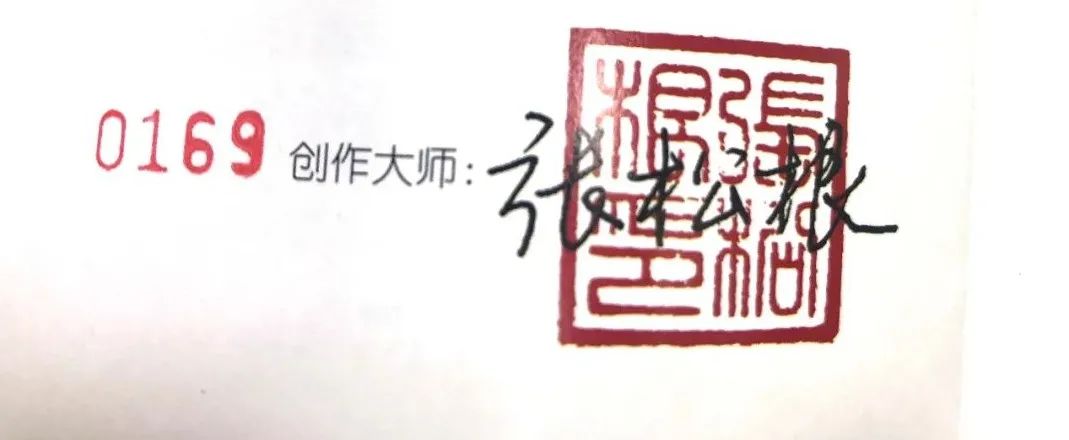 0169 创作大师: 张松根
張松根印